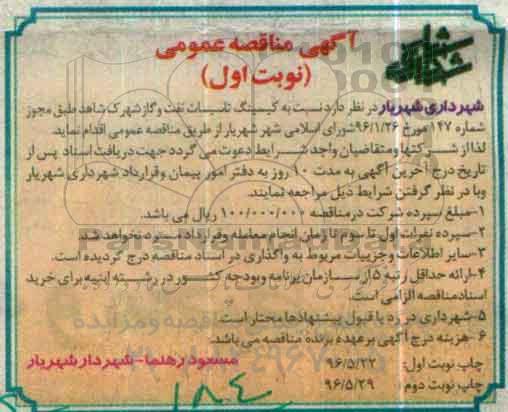 آگهی مناقصه عمومی
(نوبت اول)
شهرداری شهریار در نظر دارد نسبت به گیسینگ تاسیسات نفت و گاز شهرک شاهد طبق مجوز
شماره ۱۴۷ مورخ ۹۶/۱/۲۶ شورای اسلامی شهر شهریار از طریق مناقصه عمومی اقدام نماید.
لذا از شرکتها و متقاضیان واجد شرایط دعوت می گردد جهت دریافت اسناد پس از
تاریخ درج آخرین آگهی به مدت ۱۰ روز به دفتر امور پیمان و قرارداد شهرداری شهریار
و با در نظر گرفتن شرایط ذیل مراجعه نمایند.
۱-مبلغ سپرده شرکت در مناقصه ۱۰۰/۰۰۰/۰۰۰ ریال می باشد.
۲-سپرده نفرات اول تا سوم تا زمان انجام معامله و قرارداد مسترد نخواهد شد.
۳-سایر اطلاعات و جزییات مربوط به واگذاری در اسناد مناقصه درج گردیده است.
۴-ارائه حداقل رتبه ۵ از سازمان برنامه و بودجه کشور در رشته ابنیه برای خرید
اسناد مناقصه الزامی است.
۵-شهرداری در رد یا قبول پیشنهادها مختار است.
۶-هزینه درج آگهی بر عهده برنده مناقصه می باشد.
چاپ نوبت اول: ۹۶/۵/۲۲ مسعود رهنما-شهردار شهریار
چاپ نوبت دوم: ۹۶/۵/۲۹
۱۸۴
ParsNamadData